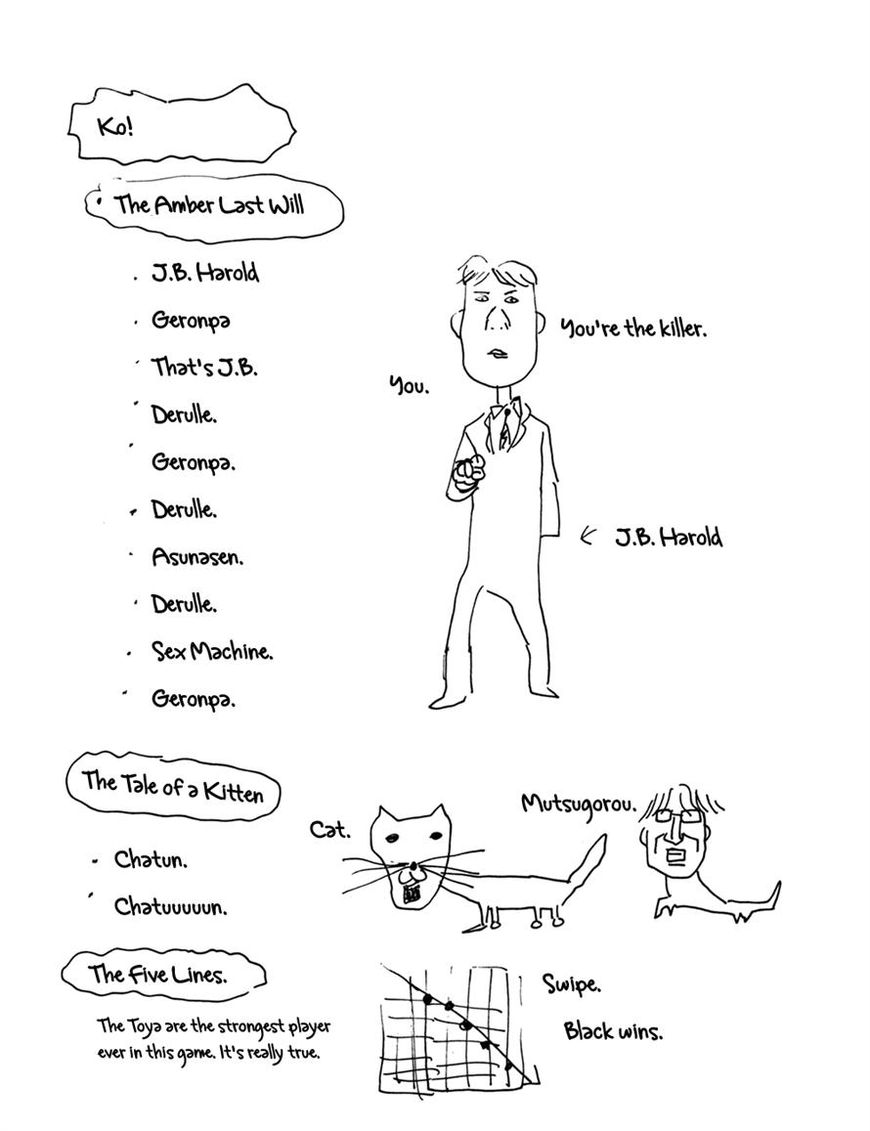 Ko!
The Amber Last Will
J.B. Harold
Geronpa
That's J.B.
Derulle.
Geronpa.
Derulle.
Asunasen.
Derulle.
Sex Machine.
Geronpa.
You.
You're the killer.
J.B. Harold
The Tale of a Kitten
Chatun.
Chatuuuuun.
Cat.
Mutsugorou.
The Five Lines.
The Toya are the strongest player
ever in this game. It's really true.
Swipe.
Black wins.